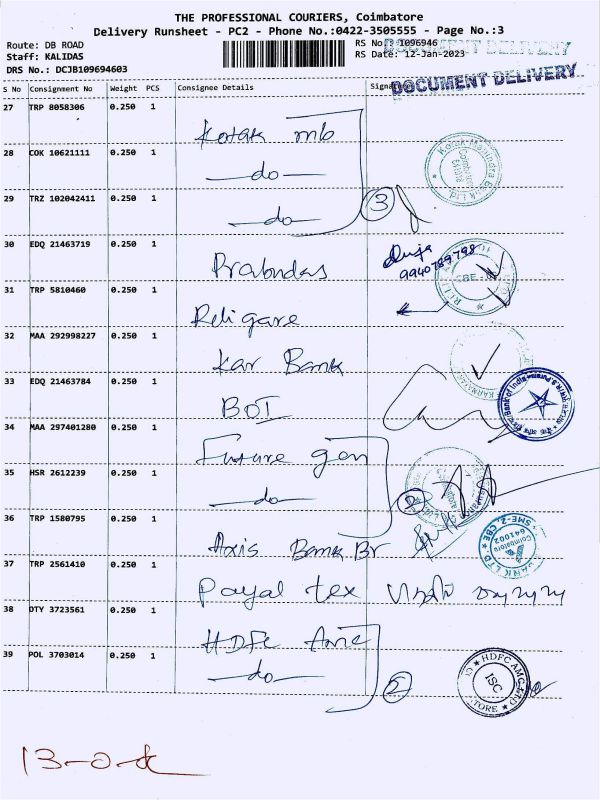 THE PROFESSIONAL COURIERS, Coimbatore
Delivery Runsheet - PC2 - Phone No.:0422-3505555 - Page No.:3
Route: DB ROAD
Staff: KALIDAS
DRS No.: DCJB109694603
RS No.: 1096946
RS Date: 12-Jan-2023
DOCUMENT DELIVERY
DOCUMENT DELIVERY
S No Consignment No Weight PCS Consignee Details
27 TRP 8058306 0.250 1 Kotak mb
28 COK 10621111 0.250 1 —do—
29 TRZ 102042411 0.250 1 —do— 3
30 EDQ 21463719 0.250 1 Prabudas 9940789798
31 TRP 5810460 0.250 1 Religare
32 MAA 292998227 0.250 1 Kar Bank
33 EDQ 21463784 0.250 1 BOI
34 MAA 297401280 0.250 1 Future gen
35 HSR 2612239 0.250 1 —do— 2
36 TRP 1580795 0.250 1 Axis Bank Br
37 TRP 2561410 0.250 1 Payal tex
38 DTY 3723561 0.250 1 HDFC
39 POL 3703014 0.250 1 —do— 2
HDFC AMC
ISC